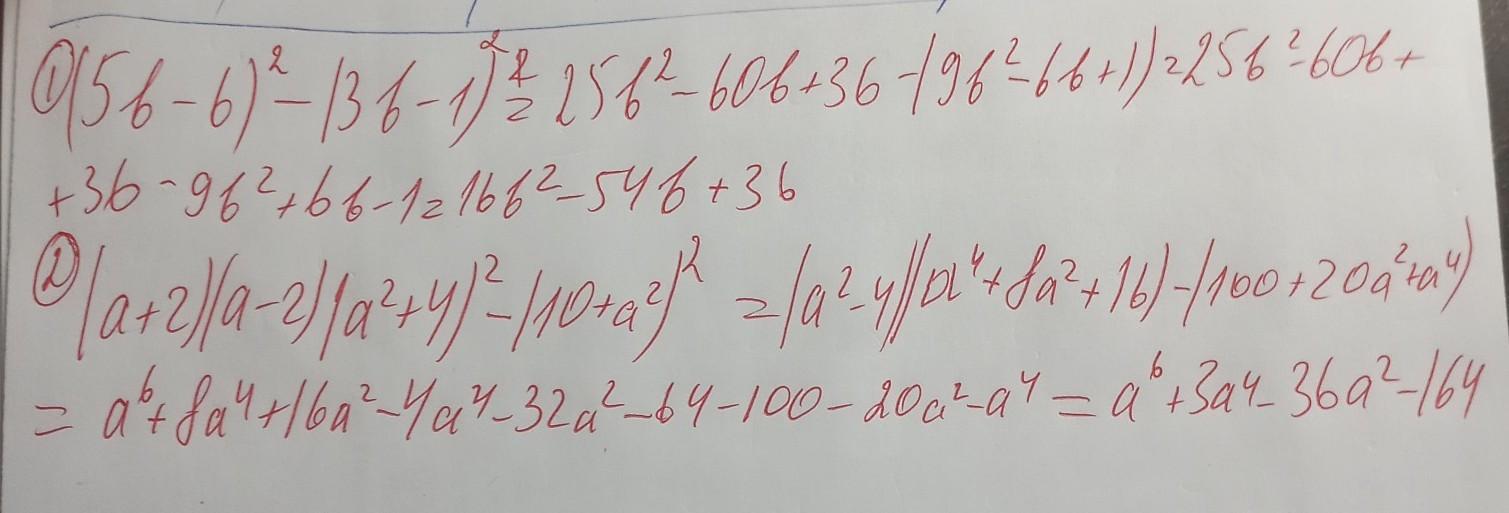 ① (5b-6)²-(3b-1)²=25b²-60b+36-(9b²-6b+1)=25b²-60b+
+36-9b²+6b-1=16b²-54b+36
② (a+2)(a-2)(a²+4)²-(10+a²)²=(a²-4)(a⁴+8a²+16)-(100+20a²+a⁴)
=a⁶+8a⁴+16a²-4a⁴-32a²-64-100-20a²-a⁴=a⁶+3a⁴-36a²-164